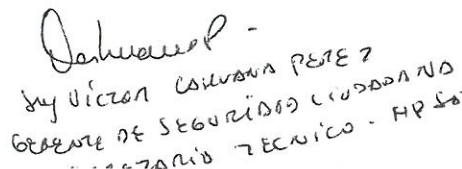 Ing Víctor Cahuana Perez
GERENTE DE SEGURIDAD CIUDADANA
TECNICO - MP